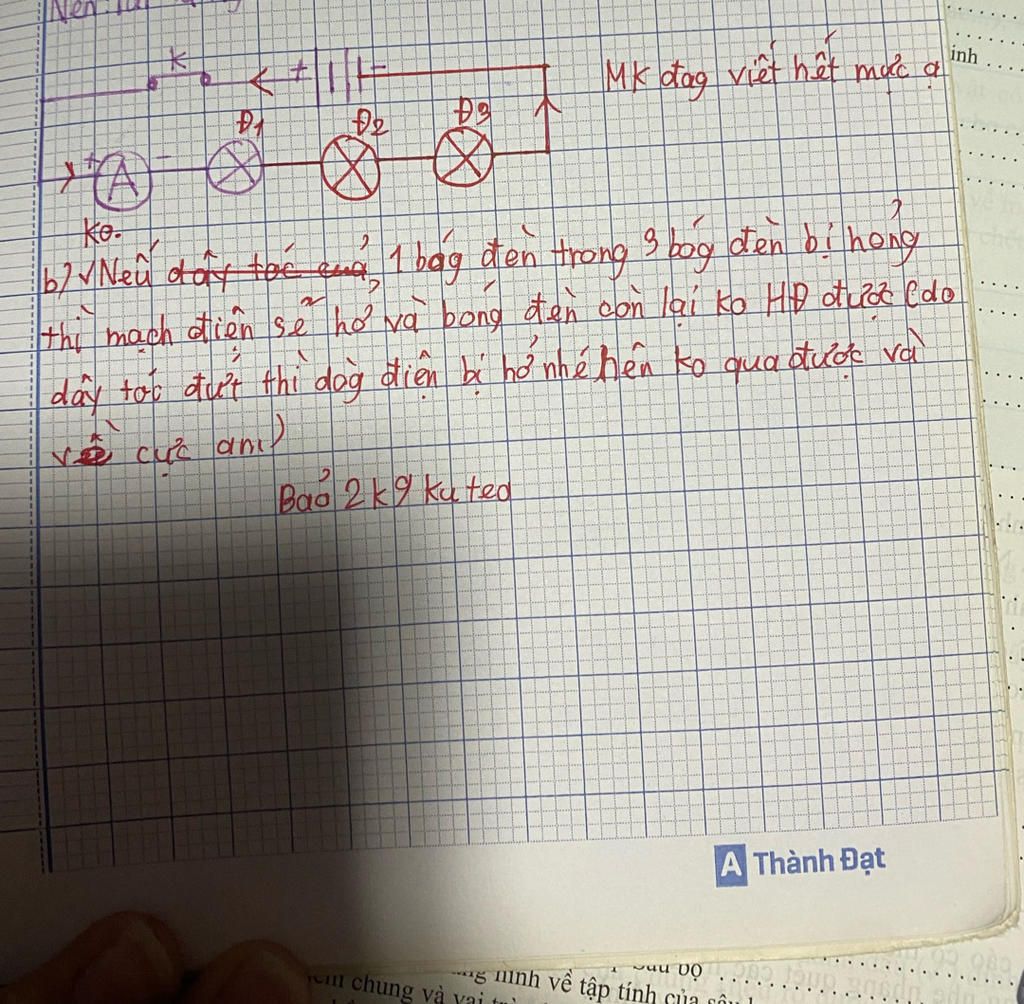 Nên
K
+ -
MK đag viết hết mực ạ
inh
Đ1 Đ2 Đ3
+ A -
ko.
b) √ Nếu dây tóc của, 1 bóg đèn trong 3 bóg đèn bị hỏng
thì mạch điện sẽ hở và bóng đèn còn lại ko HĐ được (do
dây tóc đứt thì dòg điện bị hở nhé nên ko qua được và
về cực âm)
Bảo 2k9 kuted
A Thành Đạt
chung và
hình về tập tính của